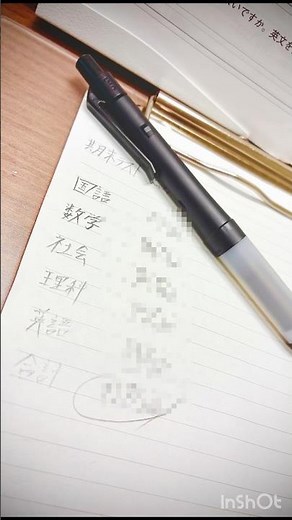 いですか。英文を
期末テスト
国語
数学
社会
理科
英語
合計
InShOt